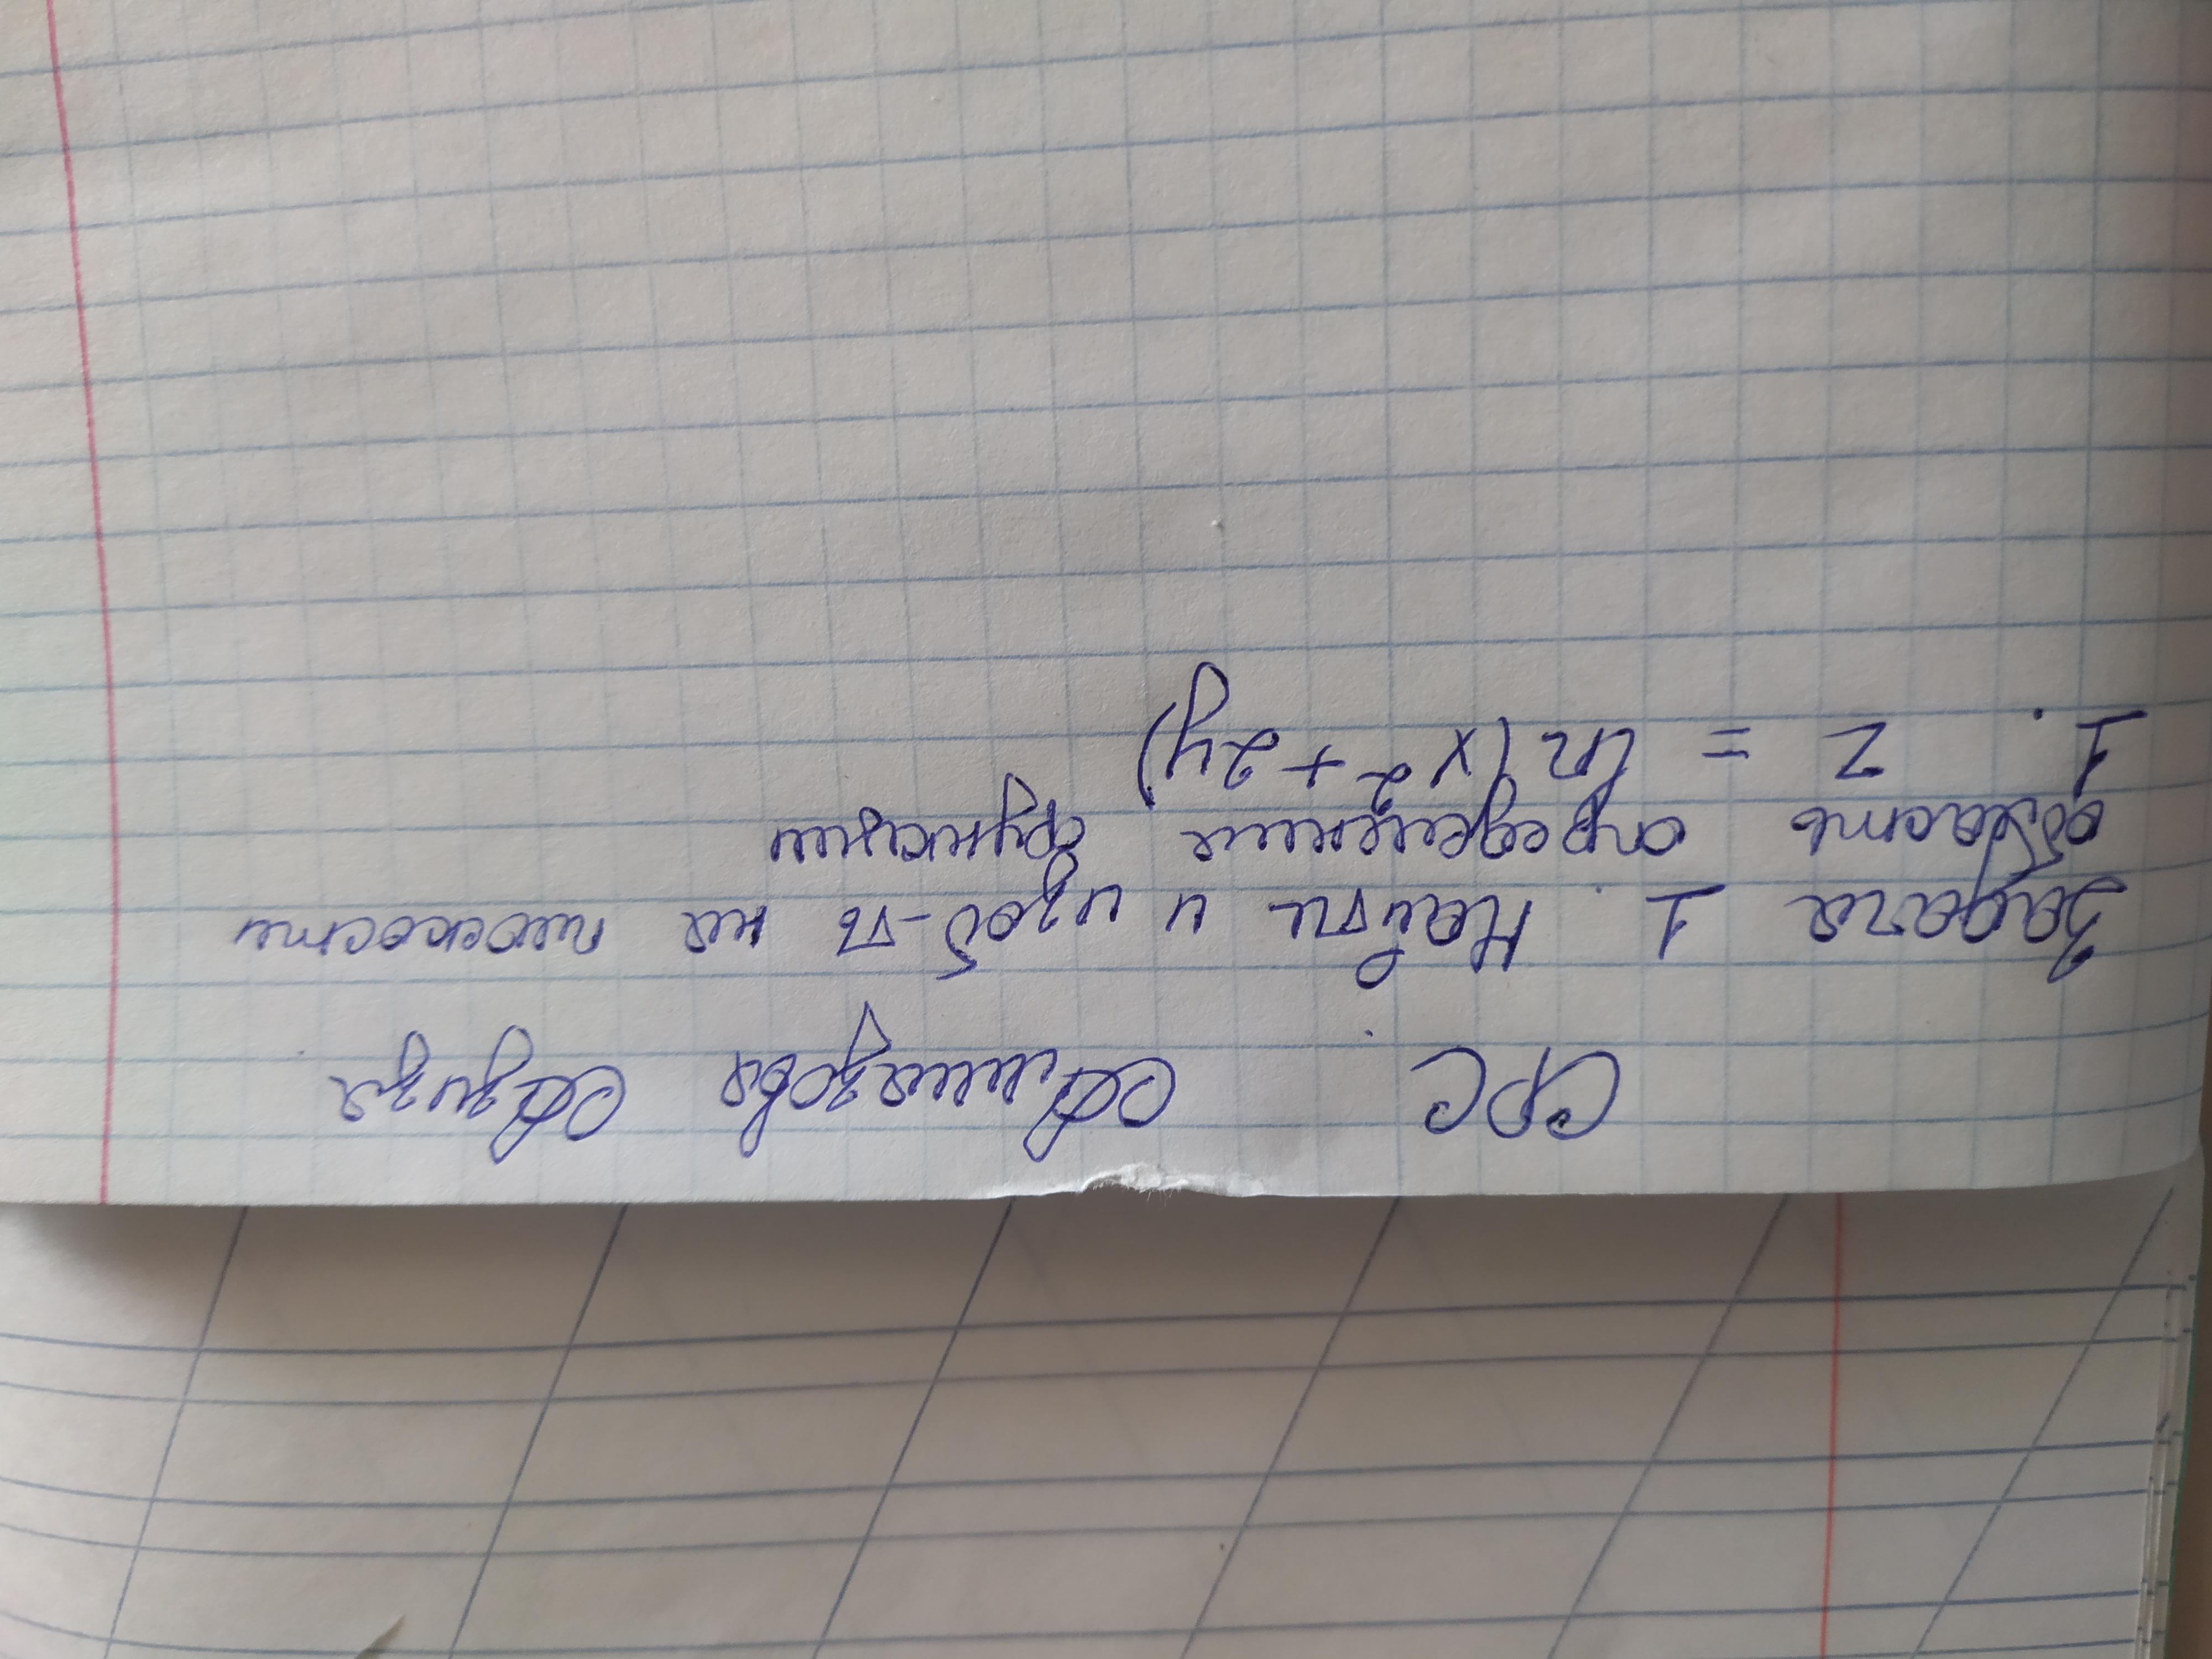 СРС. Алиазова Азиза
Задача 1. Найти и изоб-ть на плоскости
область определения функции
1. z = ln(x² + 2y)